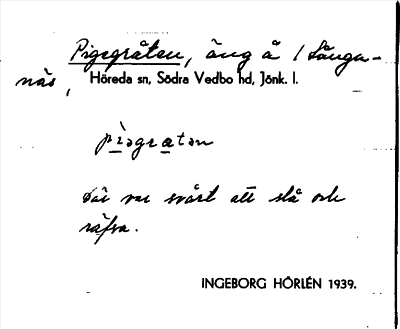 Pigegråten, äng å 1 Långa-
näs,
Höreda sn, Södra Vedbo hd, Jönk. l.
pìəgratən
Där var svårt att slå och
räfsa.
INGEBORG HÖRLÉN 1939.